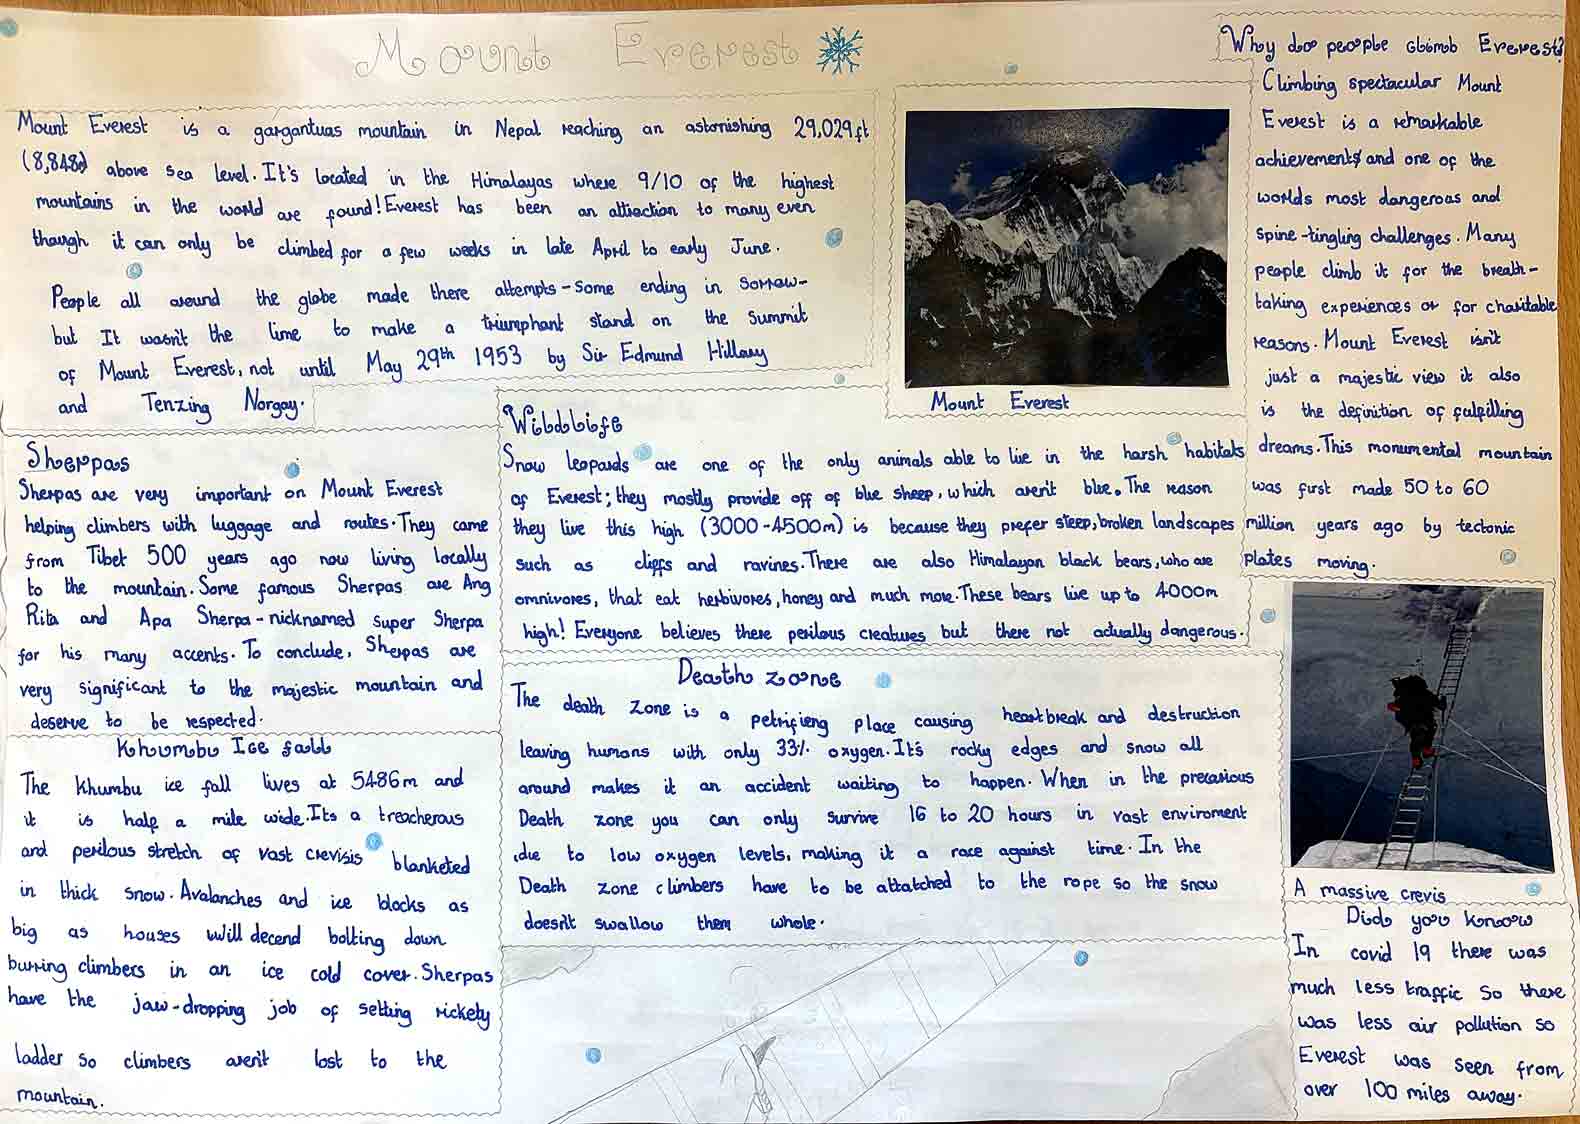 Mount Everest
Mount Everest is a gargantuas mountain in Nepal reaching an astonishing 29,029ft
(8,848m) above sea level. It's located in the Himalayas where 9/10 of the highest
mountains in the world are found! Everest has been an attraction to many even
though it can only be climbed for a few weeks in late April to early June.
People all around the globe made there attempts - some ending in sorrow -
but It wasn't the time to make a triumphant stand on the summit
of Mount Everest, not until May 29th 1953 by Sir Edmund Hillary
and Tenzing Norgay.
Mount Everest
Why do people climb Everest?
Climbing spectacular Mount
Everest is a remarkable
achievement and one of the
worlds most dangerous and
spine-tingling challenges. Many
people climb it for the breath-
taking experiences or for charitable
reasons. Mount Everest isn't
just a majestic view it also
is the definition of fulfilling
dreams. This monumental mountain
was first made 50 to 60
million years ago by tectonic
plates moving.
Sherpas
Sherpas are very important on Mount Everest
helping climbers with luggage and routes. They came
from Tibet 500 years ago now living locally
to the mountain. Some famous Sherpas are Ang
Rita and Apa Sherpa - nicknamed super Sherpa
for his many accents. To conclude, Sherpas are
very significant to the majestic mountain and
deserve to be respected.
Wildlife
Snow leopards are one of the only animals able to live in the harsh habitats
of Everest; they mostly provide off of blue sheep, which aren't blue. The reason
they live this high (3000-4500m) is because they prefer steep, broken landscapes
such as cliffs and ravines. There are also Himalayan black bears, who are
omnivores, that eat herbivores, honey and much more. These bears live up to 4000m
high! Everyone believes there perilous creatures but there not actually dangerous.
Khumbu Ice fall
The Khumbu ice fall lives at 5486m and
it is half a mile wide. Its a treacherous
and perilous stretch of vast crevisis blanketed
in thick snow. Avalanches and ice blocks as
big as houses will decend bolting down
burring climbers in an ice cold cover. Sherpas
have the jaw-dropping job of setting rickety
ladder so climbers aren't lost to the
mountain.
Death zone
The death zone is a petrifieng place causing heartbreak and destruction
leaving humans with only 33% oxygen. It's rocky edges and snow all
around makes it an accident waiting to happen. When in the precarious
Death zone you can only survive 16 to 20 hours in vast enviroment
,die to low oxygen levels, making it a race against time. In the
Death zone climbers have to be attatched to the rope so the snow
doesn't swallow them whole.
A massive crevis
Did you know
In covid 19 there was
much less traffic so there
was less air pollution so
Everest was seen from
over 100 miles away.